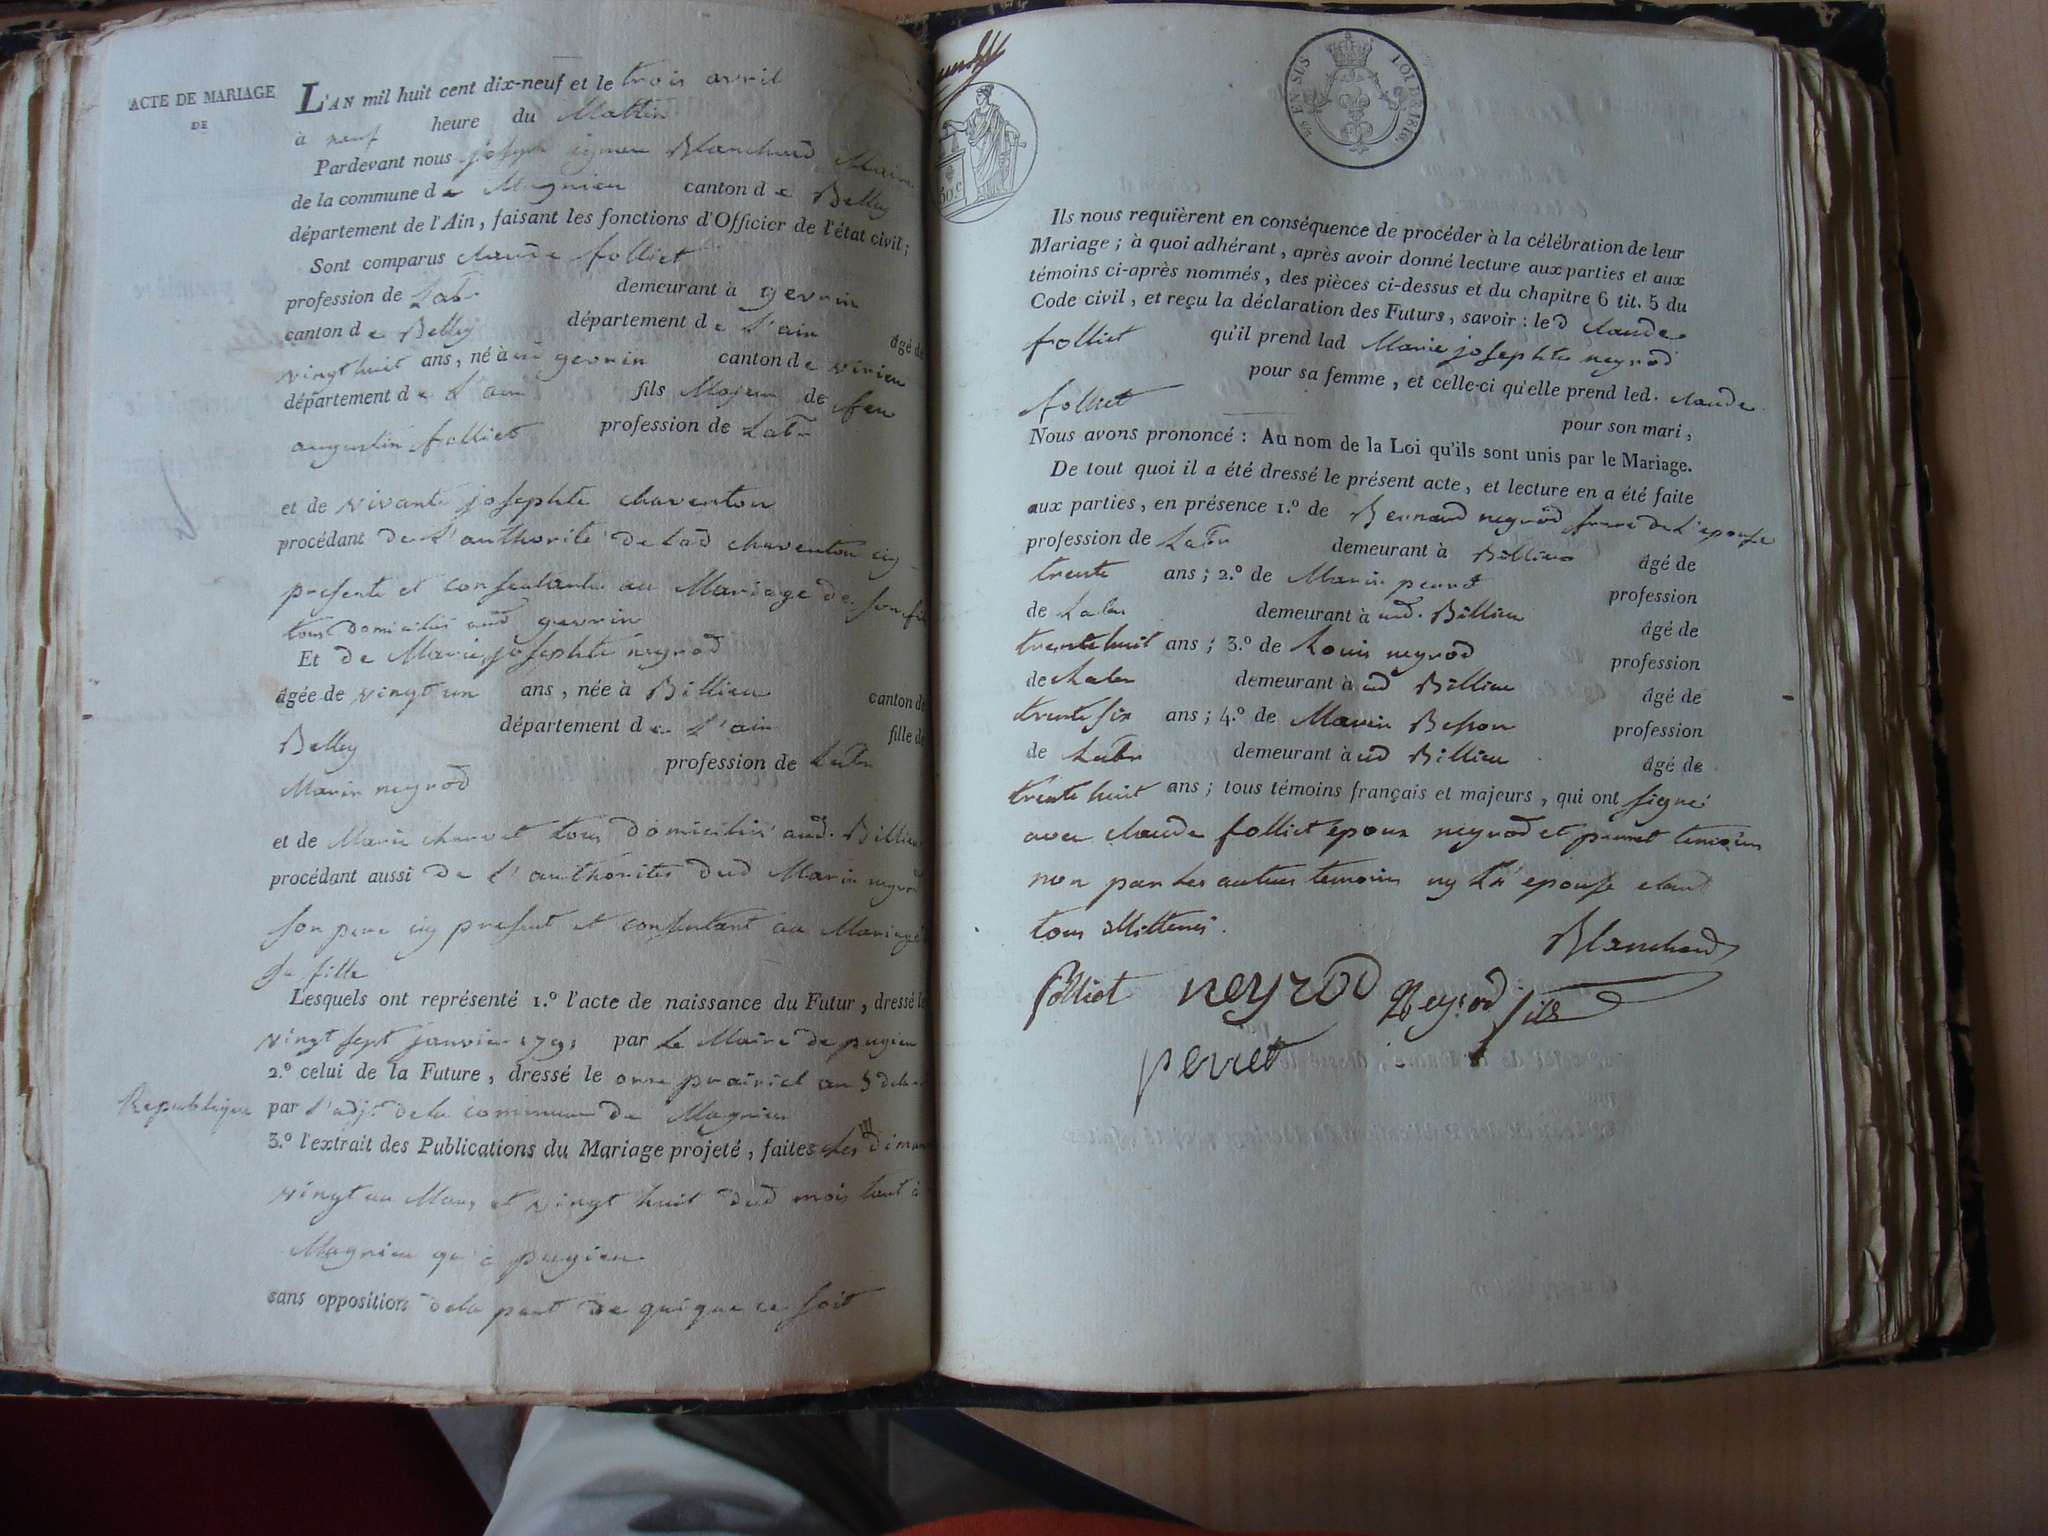 ACTE DE MARIAGE
DE
L'AN mil huit cent dix-neuf et le trois avril
à neuf heure du Mattin
Pardevant nous joseph Blanchard Maire
de la commune de Magnieu canton de Belley
département de l'Ain, faisant les fonctions d'Officier de l'état civil;
Sont comparus claude folliet
profession de Labr demeurant à gevrin
canton de Belley département de L'ain âgé de
vingt huit ans, né à gevrin canton de virieu
département de L'ain fils Majeur de feu
augustin folliet profession de Labr
et de vivante josephte chaventon
procédant de L'authorité de lad chaventon icy
presente et consentante au Mariage de son fils
tous domiciliés aud gevrin
Et de Marie josephte neyrod
âgée de vingt un ans, née à Billieu canton de
Belley département de L'ain fille de
Marin neyrod profession de Labr
et de Marie charvet tous domiciliés aud. Billieu
procédant aussi de L'authorités dud Marin neyrod
son pere icy present et consentant au Mariage
sa fille
Lesquels ont représenté 1.º l'acte de naissance du Futur, dressé le
vingt sept janvier 1791 par Le Maire de pugieu
2.º celui de la Future, dressé le onze prairiel an 5 de la
Republique par L'adjt de la commune de Magnieu
3.º l'extrait des Publications du Mariage projeté, faites Les diman
vingt un Mars et vingt huit dud mois tant à
Magnieu qu'à pugieu
sans opposition de la part de qui que ce soit
EN SUS LOI DE 1816.
50.c
Ils nous requièrent en conséquence de procéder à la célébration de leur
Mariage; à quoi adhérant, après avoir donné lecture aux parties et aux
témoins ci-après nommés, des pièces ci-dessus et du chapitre 6 tit. 5 du
Code civil, et reçu la déclaration des Futurs, savoir: led claude
folliet qu'il prend lad Marie josephte neyrod
pour sa femme, et celle-ci qu'elle prend led. claude
folliet pour son mari,
Nous avons prononcé: Au nom de la Loi qu'ils sont unis par le Mariage.
De tout quoi il a été dressé le présent acte, et lecture en a été faite
aux parties, en présence 1.º de Bernard neyrod frere de L'epouse
profession de Labr demeurant à Billieu âgé de
trente ans; 2.º de Marin perret profession
de Labr demeurant à ud. Billieu âgé de
trente huit ans; 3.º de Louis neyrod profession
de Labr demeurant à ud Billieu âgé de
trente six ans; 4.º de Marin Besson profession
de Labr demeurant à ud Billieu âgé de
trente huit ans; tous témoins français et majeurs, qui ont signé
avec claude folliet epoux neyrod et perret temoins
non par Les autres temoins ny L'epouse etant
tous illitterés.
Blanchard
folliet neyrod Neyrod fils
perret